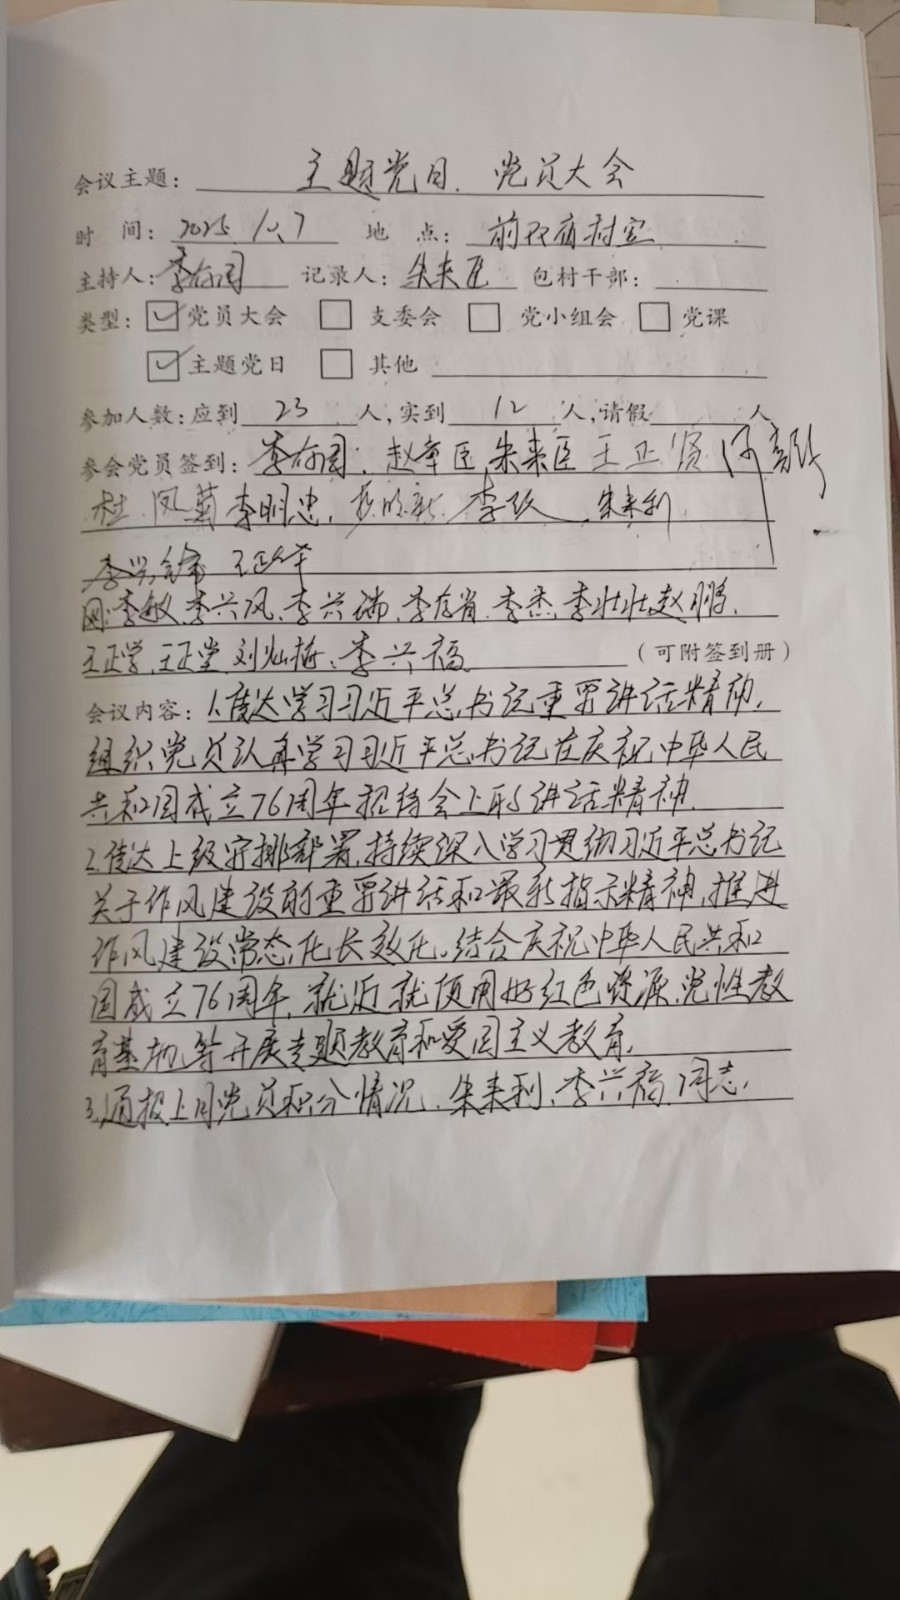 会议主题: 主题党日、党员大会
时 间: 2025.10.7 地 点: 前 村室
主持人: 李存国 记录人: 朱来臣 包村干部:
类型: ☑党员大会 □ 支委会 □ 党小组会 □ 党课
☑主题党日 □ 其他
参加人数: 应到 23 人,实到 12 人,请假 人
参会党员签到: 李存国、赵章臣 朱来臣 王正贤
杜凤菊 李明忠、 李跃、朱来利
李兴 王正
网:李敏、李兴凤、李兴瑞、李存肖、李杰、李壮壮、赵鹏、
王正学、王正堂、刘灿梅、李兴福 (可附签到册)
会议内容: 1.传达学习习近平总书记重要讲话精神,
组织党员认真学习习近平总书记在庆祝中华人民
共和国成立76周年招待会上的讲话精神.
2.传达上级安排部署,持续深入学习贯彻习近平总书记
关于作风建设的重要讲话和最新指示精神,推进
作风建设常态化长效化。结合庆祝中华人民共和
国成立76周年,就近就便用好红色资源、党性教
育基地等开展专题教育和爱国主义教育,
3.通报上月党员积分情况、朱来利、李兴福 同志,